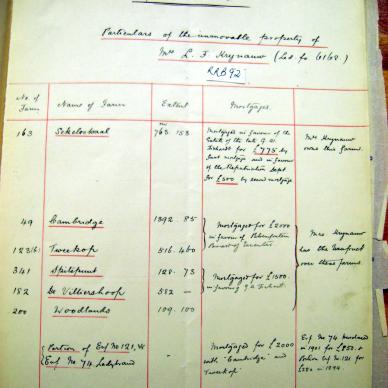 Particulars of the immovable property of
Mrs L. F. Krynauw (Led. fo 6162.)
RRB92
No. of Farm
Name of Farm
Extent
Mortgages
163
768. 153
Mortgaged in favour of the
Estate of the late G. A.
Fichardt for £775 by
first mortgage and in favour
of the Repatriation Dept
for £500 by second mortgage
Mrs Krynauw
owns this farm.
49 Cambridge 1392. 85
Mortgaged for £2000
in favour of
Board of Executors
123 Tweekop 516. 460
Mrs Krynauw
has the usufruct
over these farms
341 Spitspunt 128. 73
Mortgaged for £1500.
in favour of G A Fichardt.
182 De Villiershoop 582 —
200 Woodlands 109. 100
Portion of Erf No 121, &
Erf No 74 Ladybrand
-
Mortgaged for £2000
with "Cambridge" and
"Tweekop"
Erf No 74 purchased
in 1901 for £850. &
Portion Erf No 121 for
in 1894